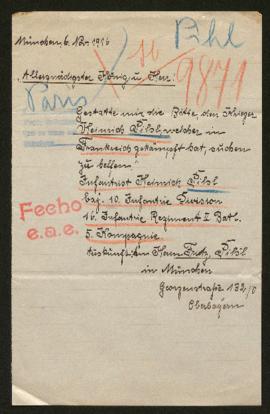 München 6. Nov. 1916
Bhl
16
9871
Allergnädigster König u. Herr.
Paris
Gestatte mir die Bitte den Krieger
Heinrich Pilsl welcher in
Frankreich gekämpft hat, suchen
zu helfen.
Infantrist Heinrich Pilsl
bay. 10. Infantrie Division
16. Infantrie Regiment II Batl.
5. Kompagnie
Auskunft an Herrn Pilsl
in München
Georgenstraße 132/0
Oberbayern
Feeho
e.a.e.